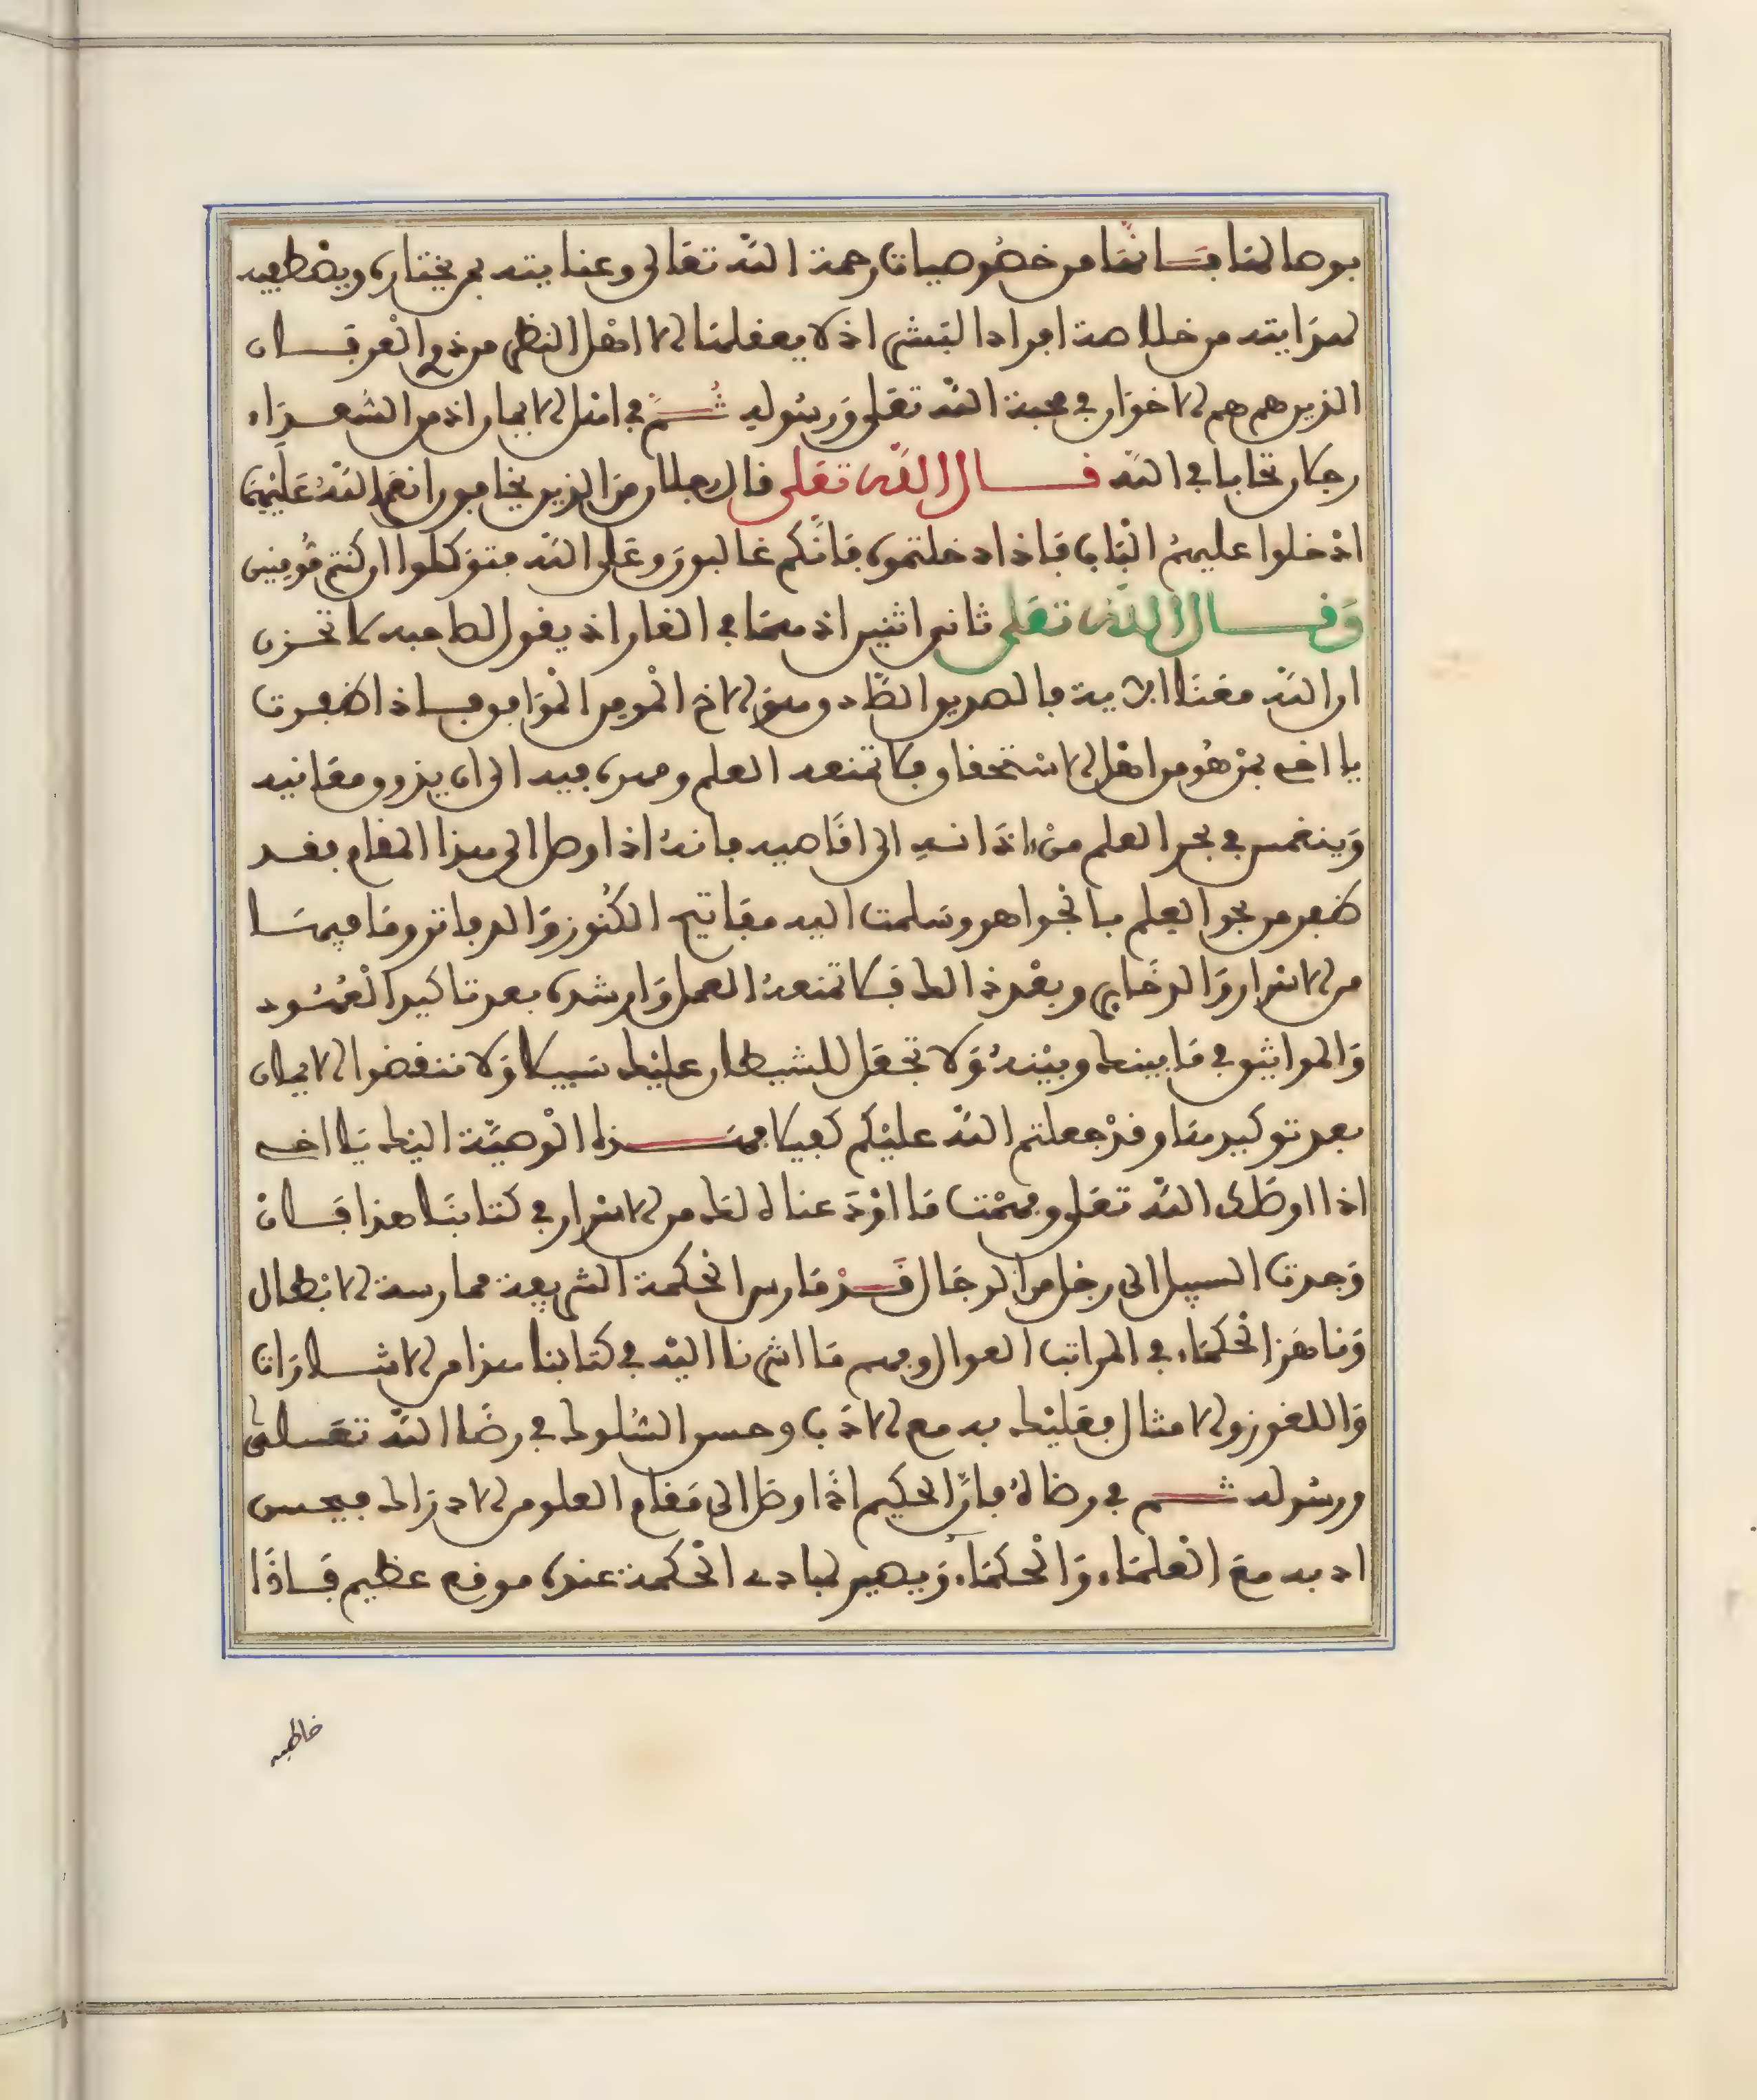 بوصالها فإنها من خصوصيات رحمة الله تعالى وعنايته بمن يختاره ويصطفيه
لهدايته من خلاصة افراد البشر اذ لا يعقلها الا اهل النظر من ذوي العرفان
الذين هم هم الاخوان في محبة الله تعلى ورسوله ثم في اهل الايمان اذ من الشعراء
رجلان تحابا في الله قال الله تعلى قال رجلان من الذين يخافون انعم الله عليهما
ادخلوا عليهم الباب فاذا دخلتموه فانكم غالبون وعلى الله فتوكلوا ان كنتم مومنين
وقال الله تعلى ثاني اثنين اذ هما في الغار اذ يقول لصاحبه لا تحزن
ان الله معنا الاية فالصديق الصاد وهو الاخ المومن الموافق فاذا ظفرت
يا اخي بمن هو من اهل الاستحقاق فلا تمنعه العلم ومده فيه الى ان يذوق معانيه
وينغمس في بحر العلم من ادانيه الى اقاصيه فانه اذا وصل الى هذا المقام فقد
ظفر من بحر العلم بالجواهر وسلمت اليه مفاتيح الكنوز والدفاتر وما فيها
من الاسرار والذخاير وبعد ذالك فلا تمنعه العمل وارشده بعد تاكيد العهود
والمواثيق في ما بينك وبينه ولا تجعل للشيطان عليك سبيلا ولا تنقضوا الايمان
بعد توكيدها وقد جعلتم الله عليكم كفيلا فهذه الوصية اليك يا اخي
اذا اوصلك الله تعلى وفهمت ما اودعناه لك من الاسرار في كتابنا هذا فان
وجدت السبيل الى رجل من الرجال قد مارس الحكمة الشريفة ممارسة الابطال
وناهز الحكماء في المراتب العوال وفهم ما اشرنا اليه في كتابنا هذا من الاشارات
واللغوز والامثال فعليك به مع الادب وحسن السلوك في رضا الله تعلى
ورسوله ثم في رضاه فان الحكيم اذا وصل الى مقام العلوم الادراك فيحسن
ادبه مع العلماء والحكماء ويصير لمبادي الحكمة عنده موقع عظيم فاذا